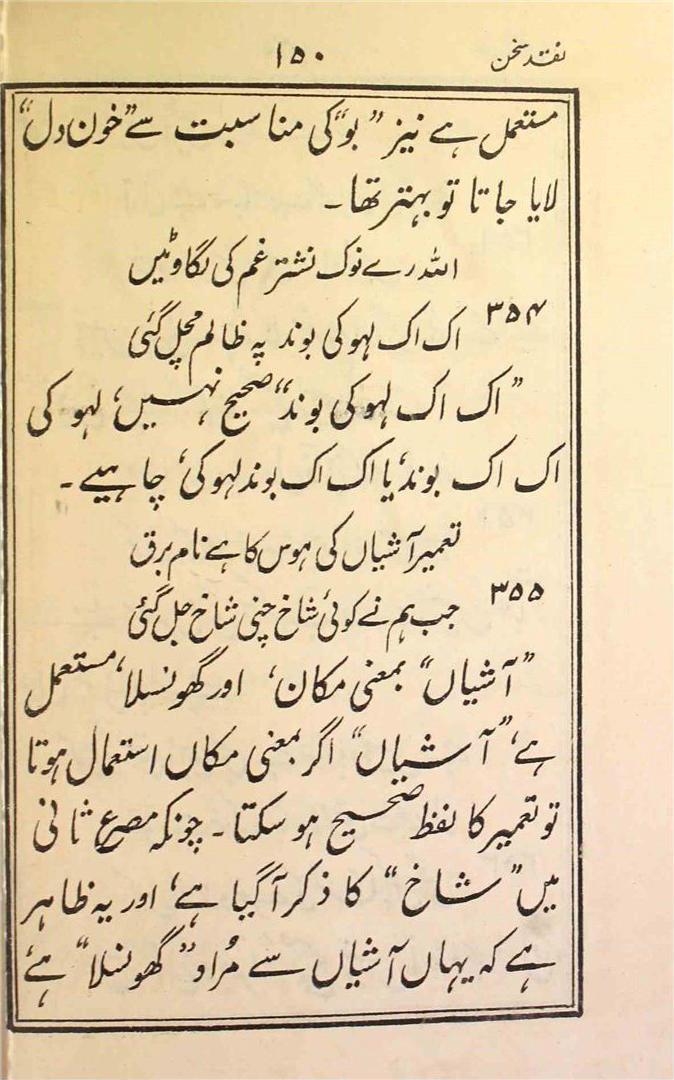 نقد سخن ۱۵۰
مستعمل ہے نیز ”بو“ کی مناسبت سے ”خون دل“
لایا جاتا تو بہتر تھا۔
اللہ رے نوک نشتر غم کی لگاوٹیں
۳۵۴
اک اک لہو کی بوند پہ ظالم مچل گئی
”اک اک لہو کی بوند“ صحیح نہیں، لہو کی
اک اک بوند‘ یا اک اک بوند لہو کی‘ چاہیے۔
تعمیر آشیاں کی ہوس کا ہے نام برق
۳۵۵
جب ہم نے کوئی شاخ چنی شاخ جل گئی
”آشیاں“ بمعنی مکان‘ اور گھونسلا‘ مستعمل
ہے‘ ”آشیاں“ اگر بمعنی مکاں استعمال ہوتا
تو تعمیر کا لفظ صحیح ہو سکتا۔ چونکہ مصرع ثانی
میں ”شاخ“ کا ذکر آگیا ہے‘ اور یہ ظاہر
ہے کہ یہاں آشیاں سے مُراد ”گھونسلا“ ہے